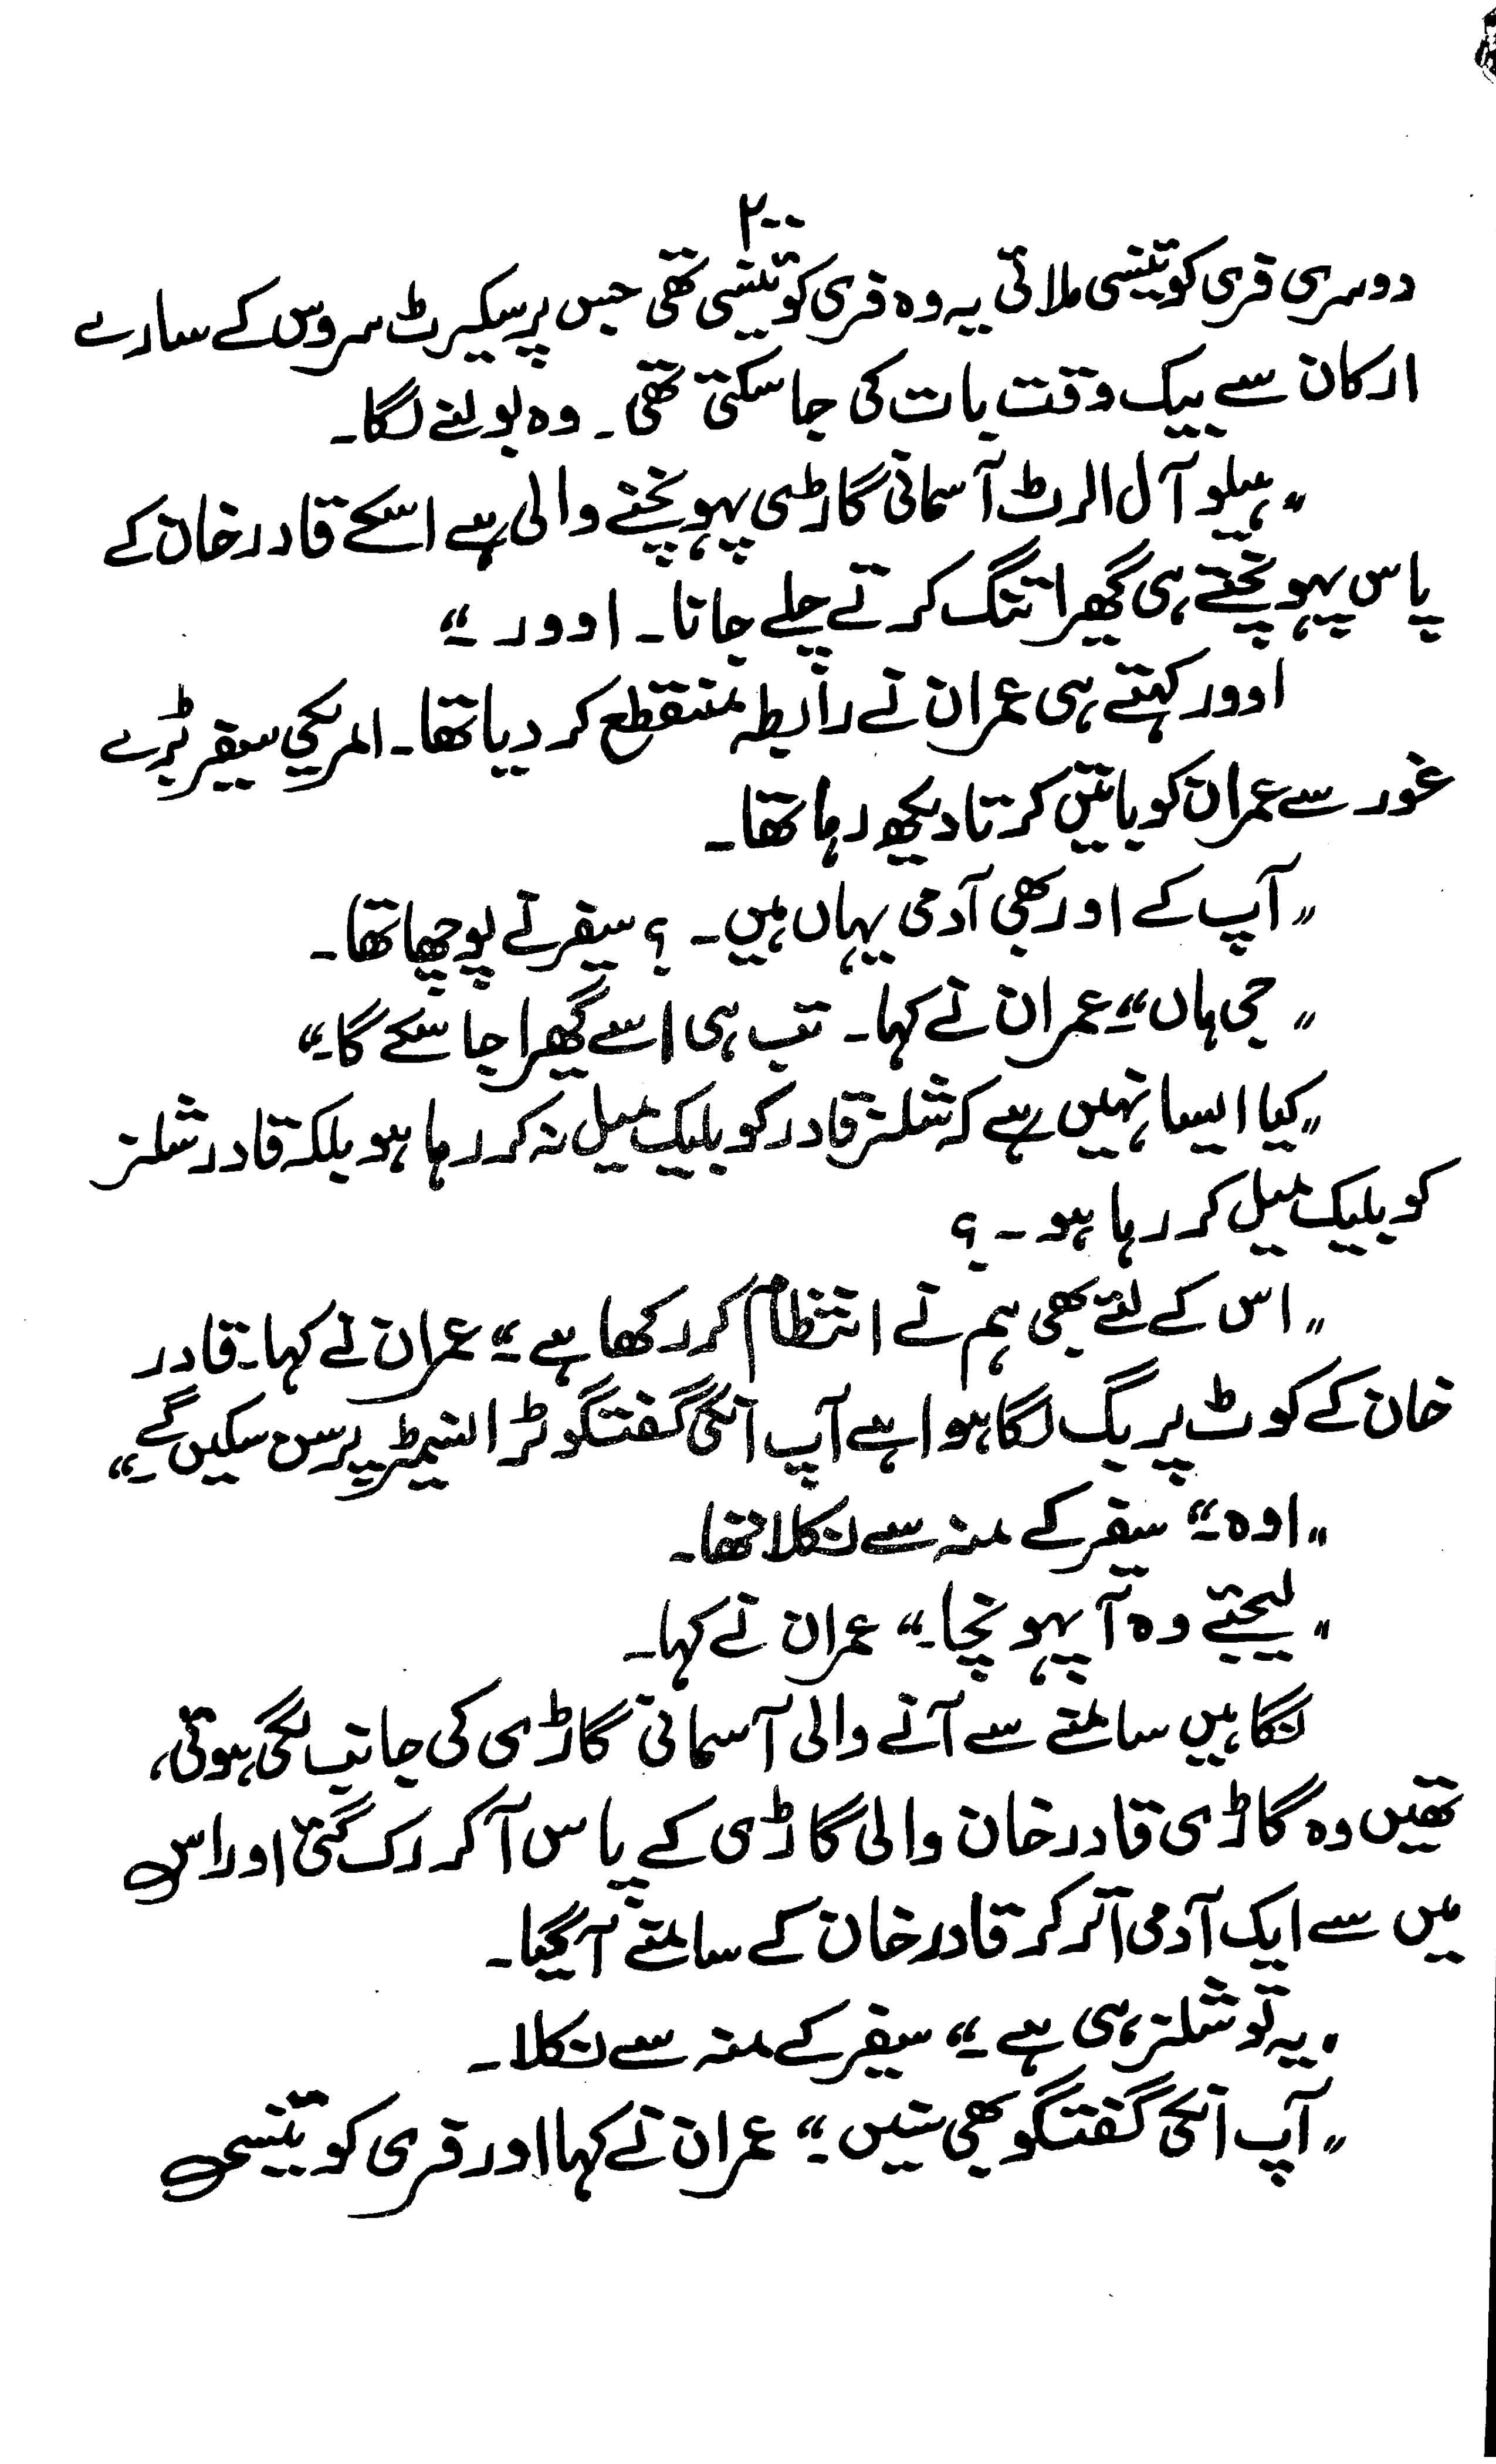 ۲۰۰
دوسری فری کوئینسی ملائی یہ وہ فری کوئینسی تھی جس پر سیکرٹ سروس کے سارے
ارکان سے بیک وقت بات کی جا سکتی تھی۔ وہ بولنے لگا۔
"ہیلو آل الرٹ آسمانی گاڑی پہونچنے والی ہے اسکے قادر خان کے
پاس پہونچتے ہی گھیرا تنگ کرتے چلے جانا۔ اوور۔"
اوور کہتے ہی عمران نے رابطہ منقطع کر دیا تھا۔ امریکی سیفر بڑے
غور سے عمران کو باتیں کرتا دیکھ رہا تھا۔
"آپ کے اور بھی آدمی یہاں ہیں۔؟ سیفر نے پوچھا تھا۔
"جی ہاں"۔ عمران نے کہا۔ تب ہی اسے گھیرا جا سکے گا۔"
"کیا ایسا نہیں ہے کہ شلنر قادر کو بلیک میل نہ کر رہا ہو بلکہ قادر شلنر
کو بلیک میل کر رہا ہو۔؟
"اس کے لئے بھی ہم نے انتظام کر رکھا ہے۔" عمران نے کہا۔ قادر
خان کے کوٹ پر بگ لگا ہوا ہے آپ انکی گفتگو ٹرانسیمٹر پر سن سکیں گے۔"
"اوہ۔" سیفر کے منہ سے نکلا تھا۔
"لیجئے وہ آ پہونچا۔" عمران نے کہا۔
نگاہیں سامنے سے آنے والی آسمانی گاڑی کی جانب لگی ہوئی،
تھیں وہ گاڑی قادر خان والی گاڑی کے پاس آکر رک گئی اور اس
میں سے ایک آدمی اتر کر قادر خان کے سامنے آ گیا۔
"یہ تو شلنر ہی ہے۔" سیفر کے منہ سے نکلا۔
"آپ انکی گفتگو بھی سنیں۔" عمران نے کہا اور فری کوئینسی